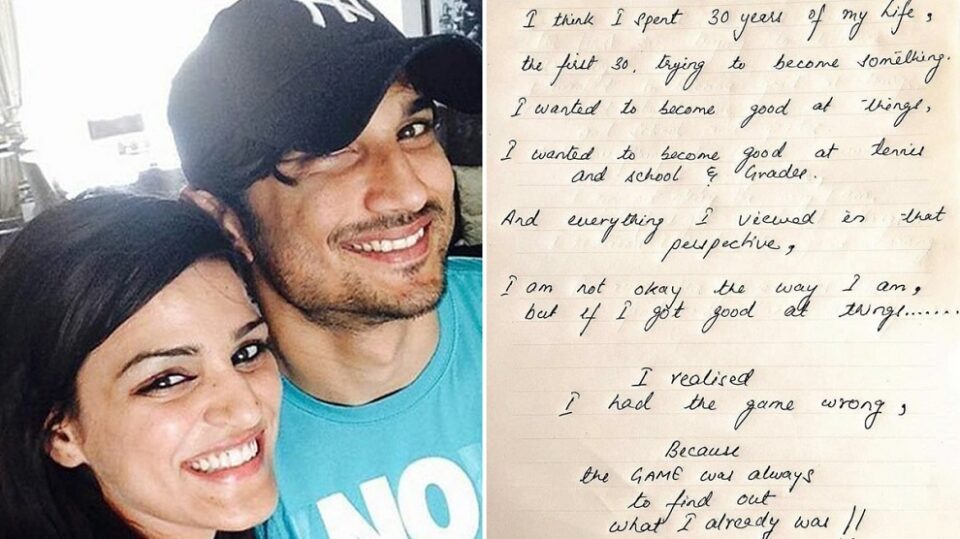 NY
NO
I think I spent 30 years of my life,
the first 30, trying to become something.
I wanted to become good at things,
I wanted to become good at tennis
and school & Grades.
And everything I viewed in that
perspective,
I am not okay the way I am,
but if I got good at things.......
I realised
I had the game wrong,
Because
the GAME was always
to find out
what I already was //